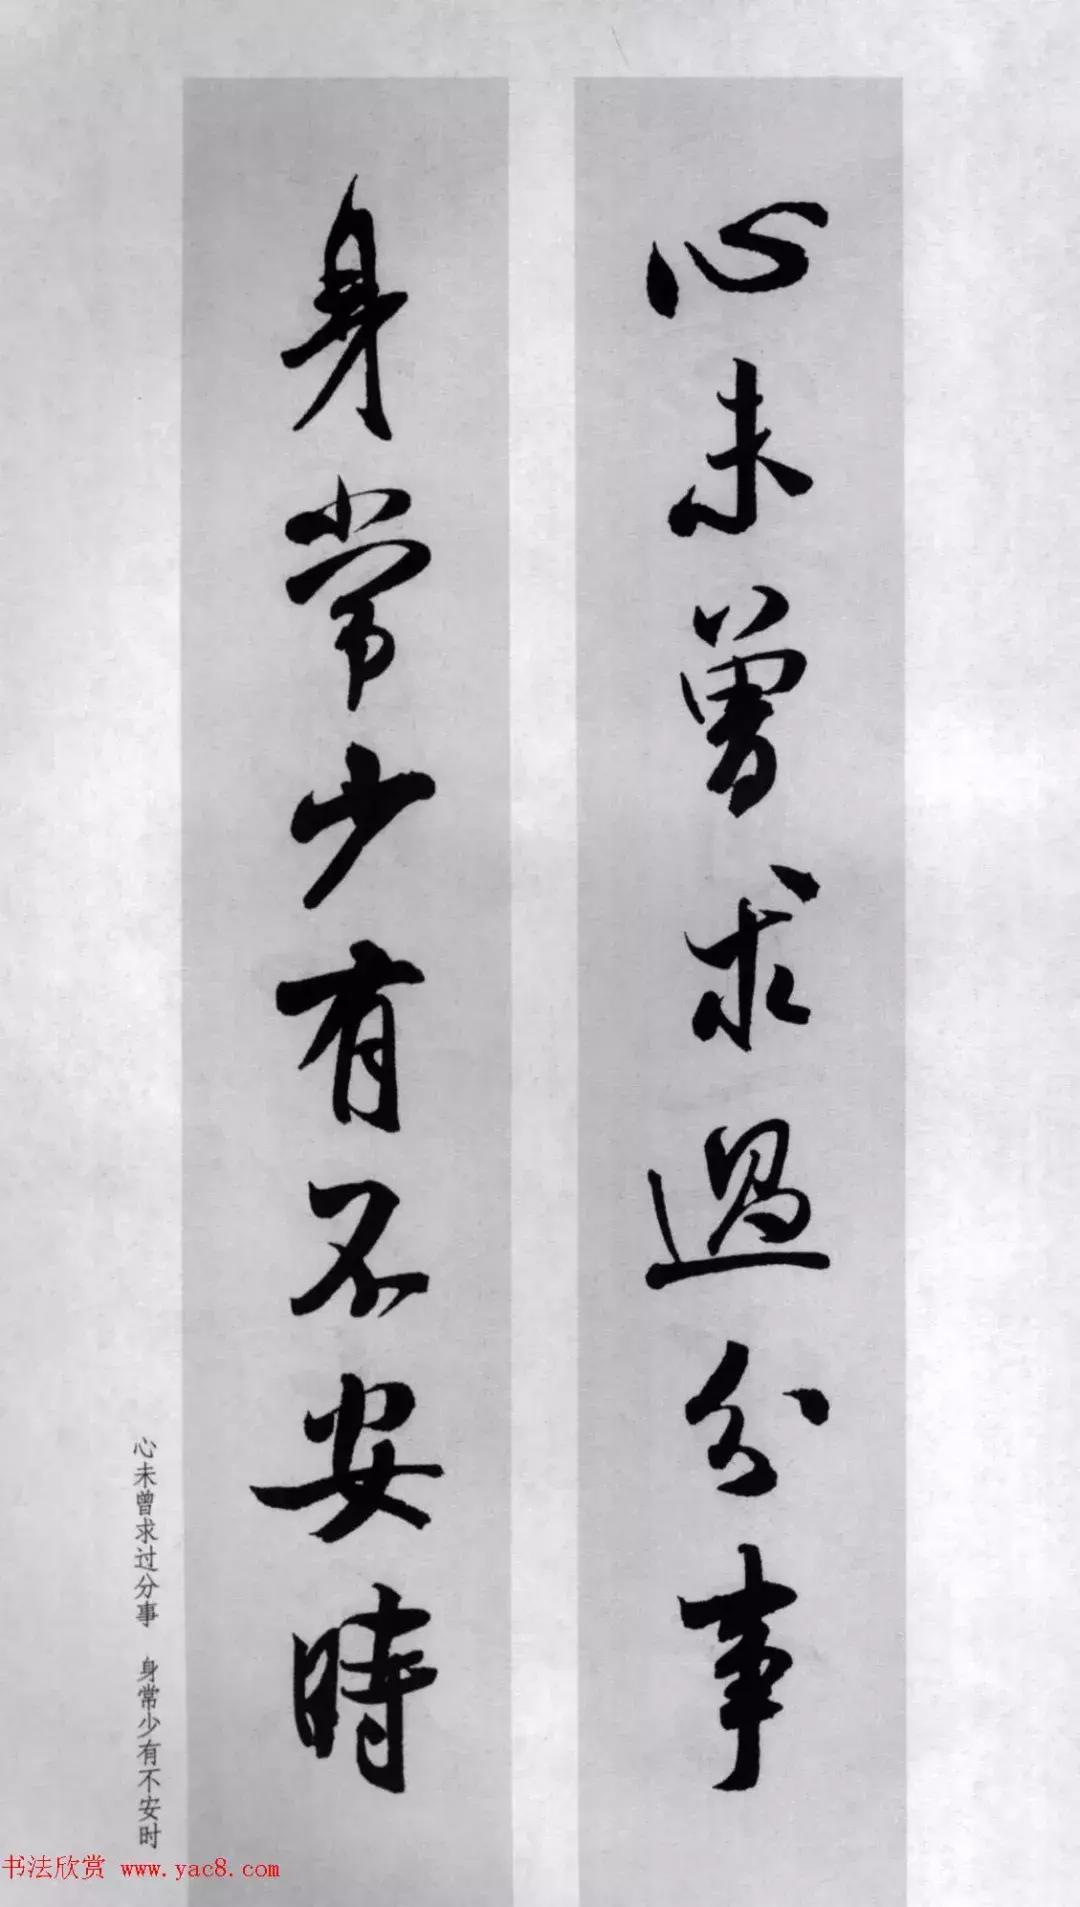 心未曾求過分事
身常少有不安時
心未曾求过分事 身常少有不安时
书法欣赏 www.yac8.com